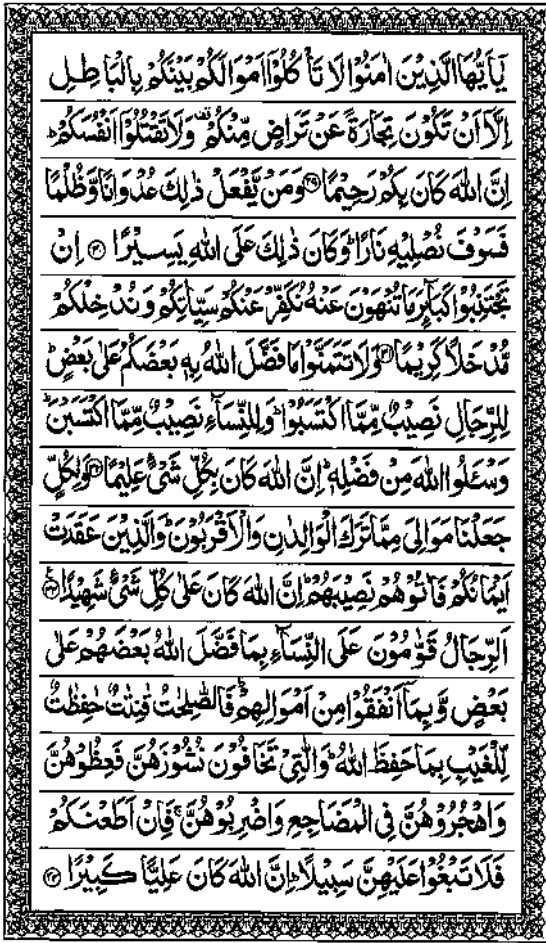 يٰۤاَيُّهَا الَّذِيْنَ اٰمَنُوْا لَا تَاْكُلُوْۤا اَمْوَالَكُمْ بَيْنَكُمْ بِالْبَاطِلِ
اِلَّاۤ اَنْ تَكُوْنَ تِجَارَةً عَنْ تَرَاضٍ مِّنْكُمْ ۫ وَلَا تَقْتُلُوْۤا اَنْفُسَكُمْ ؕ
اِنَّ اللّٰهَ كَانَ بِكُمْ رَحِيْمًا ﴿۲۹﴾ وَمَنْ يَّفْعَلْ ذٰلِكَ عُدْوَانًا وَّظُلْمًا
فَسَوْفَ نُصْلِيْهِ نَارًا ؕ وَكَانَ ذٰلِكَ عَلَى اللّٰهِ يَسِيْرًا ﴿۳۰﴾ اِنْ
تَجْتَنِبُوْا كَبَآئِرَ مَا تُنْهَوْنَ عَنْهُ نُكَفِّرْ عَنْكُمْ سَيِّاٰتِكُمْ وَنُدْخِلْكُمْ
مُّدْخَلًا كَرِيْمًا ﴿۳۱﴾ وَلَا تَتَمَنَّوْا مَا فَضَّلَ اللّٰهُ بِهٖ بَعْضَكُمْ عَلٰى بَعْضٍ ؕ
لِلرِّجَالِ نَصِيْبٌ مِّمَّا اكْتَسَبُوْا ؕ وَلِلنِّسَآءِ نَصِيْبٌ مِّمَّا اكْتَسَبْنَ ؕ
وَسْـَٔلُوا اللّٰهَ مِنْ فَضْلِهٖ ؕ اِنَّ اللّٰهَ كَانَ بِكُلِّ شَیْءٍ عَلِيْمًا ﴿۳۲﴾ وَلِكُلٍّ
جَعَلْنَا مَوَالِیَ مِمَّا تَرَكَ الْوَالِدٰنِ وَالْاَقْرَبُوْنَ ؕ وَالَّذِيْنَ عَقَدَتْ
اَيْمَانُكُمْ فَاٰتُوْهُمْ نَصِيْبَهُمْ ؕ اِنَّ اللّٰهَ كَانَ عَلٰى كُلِّ شَیْءٍ شَهِيْدًا ﴿۳۳﴾ ۧ
اَلرِّجَالُ قَوّٰمُوْنَ عَلَى النِّسَآءِ بِمَا فَضَّلَ اللّٰهُ بَعْضَهُمْ عَلٰى
بَعْضٍ وَّبِمَاۤ اَنْفَقُوْا مِنْ اَمْوَالِهِمْ ؕ فَالصّٰلِحٰتُ قٰنِتٰتٌ حٰفِظٰتٌ
لِّلْغَيْبِ بِمَا حَفِظَ اللّٰهُ ؕ وَالّٰتِیْ تَخَافُوْنَ نُشُوْزَهُنَّ فَعِظُوْهُنَّ
وَاهْجُرُوْهُنَّ فِی الْمَضَاجِعِ وَاضْرِبُوْهُنَّ ۚ فَاِنْ اَطَعْنَكُمْ
فَلَا تَبْغُوْا عَلَيْهِنَّ سَبِيْلًا ؕ اِنَّ اللّٰهَ كَانَ عَلِيًّا كَبِيْرًا ﴿۳۴﴾